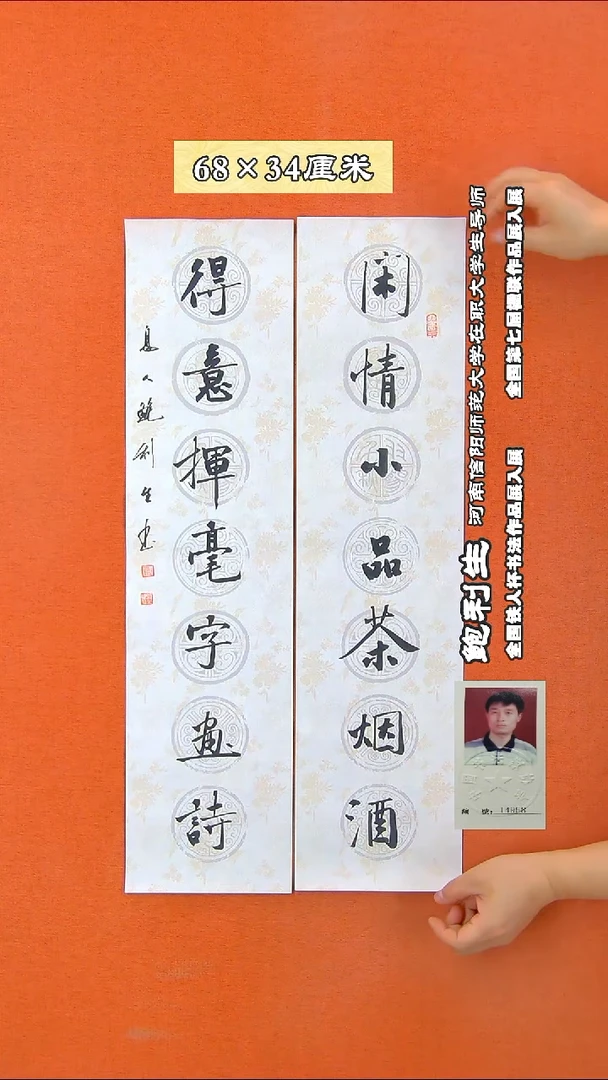 68×34厘米
闲情小品茶烟酒
得意揮毫字画詩
息人鲍利生书
鲍利生 河南信阳师范大学在职大学生导师
全国第七届楹联作品展入展
全国铁人杯书法作品展入展